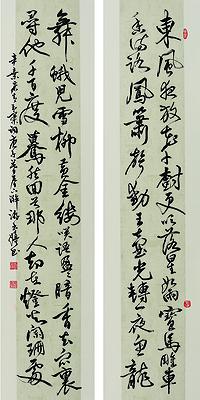 東風夜放花千樹更吹落星如雨寶馬雕車
香滿路鳳簫聲動玉壺光轉一夜魚龍
舞蛾兒雪柳黃金縷笑語盈盈暗香去眾裏
尋他千百度驀然回首那人却在燈火闌珊處
辛棄疾青玉案詞庚子